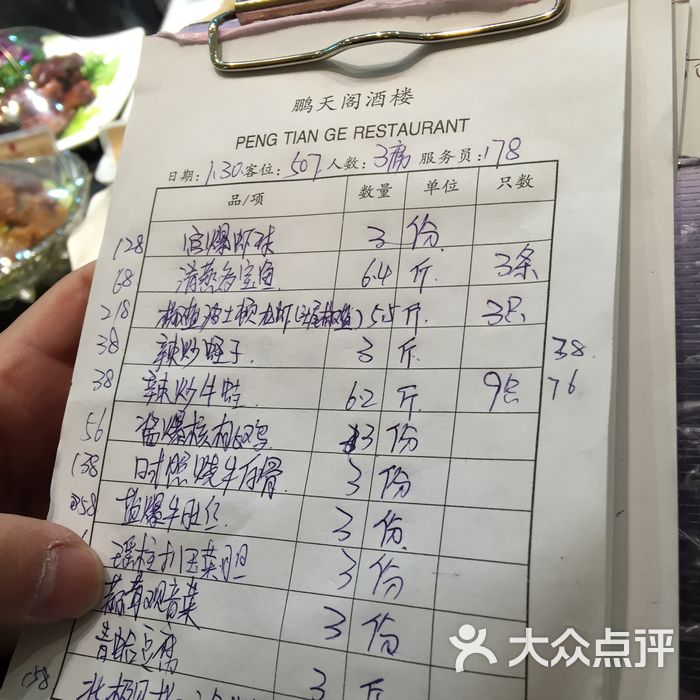 鹏天阁酒楼
PENG TIAN GE RESTAURANT
日期: 1.30 客位: 507 人数: 3席 服务员: 178
品/项 数量 单位 只数
128 宫爆虾球 3 份
68 清蒸多宝鱼 6.4 斤 3条
218 龙虾 5.5 斤 3只
38 辣炒蛏子 3 斤 38
38 辣炒牛蛙 6.2 斤 9只 76
56 酱爆核桃鸡 3 份
138 日式照烧牛仔骨 3 份
58 爆牛肚丝 3 份
瑶柱扒玉菜胆 3 份
观音菜 3 份
青蛤豆腐 3 份
58 3 斤
大众点评